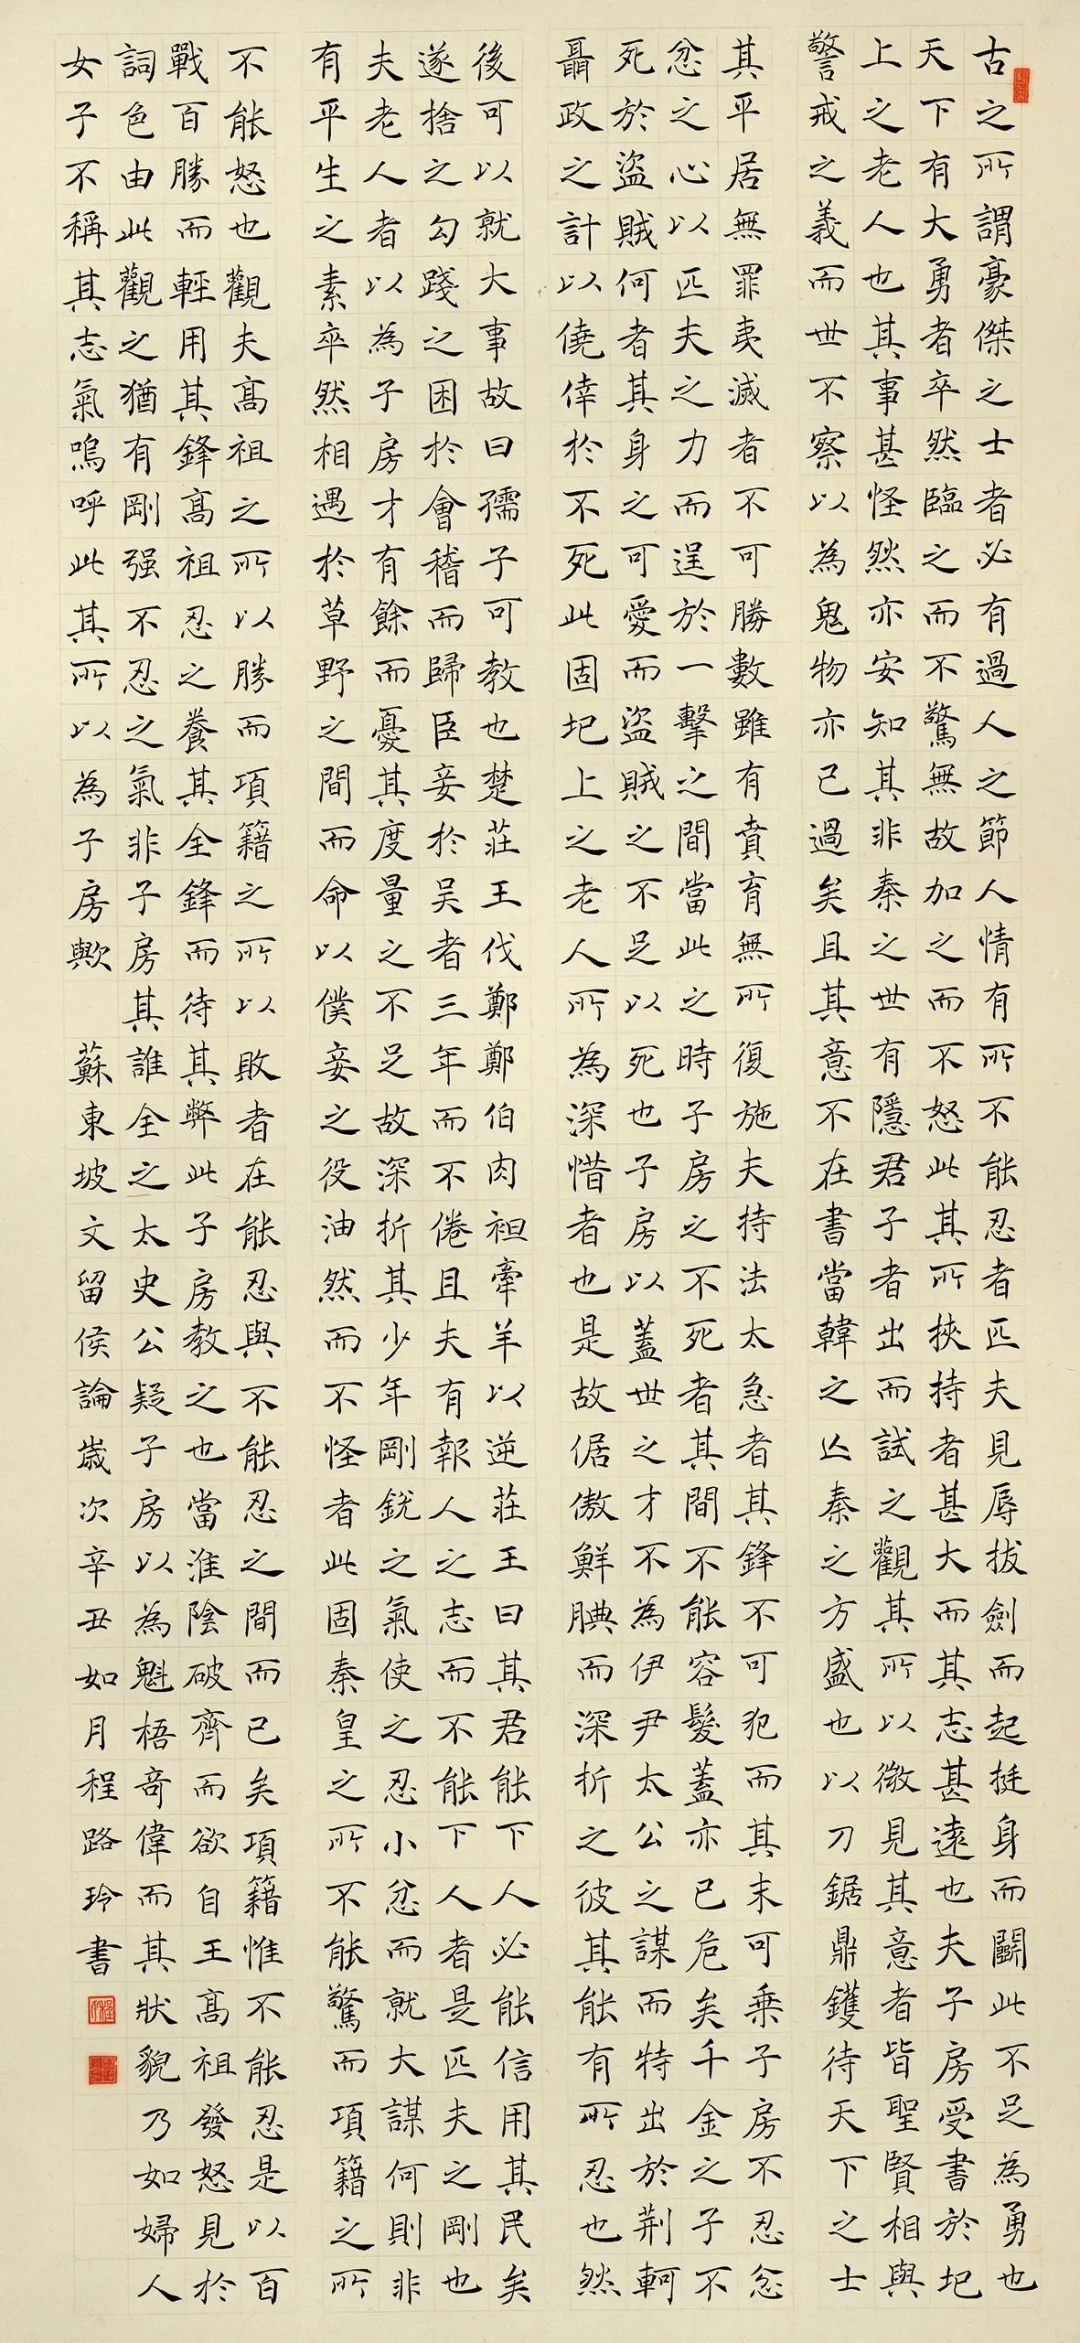 古之所謂豪傑之士者必有過人之節人情有所不能忍者匹夫見辱拔劍而起挺身而鬭此不足為勇也
天下有大勇者卒然臨之而不驚無故加之而不怒此其所挾持者甚大而其志甚遠也夫子房受書於圯
上之老人也其事甚怪然亦安知其非秦之世有隱君子者出而試之觀其所以微見其意者皆聖賢相與
警戒之義而世不察以為鬼物亦已過矣且其意不在書當韓之亡秦之方盛也以刀鋸鼎鑊待天下之士
其平居無罪夷滅者不可勝數雖有賁育無所復施夫持法太急者其鋒不可犯而其末可乘子房不忍忿
忿之心以匹夫之力而逞於一擊之間當此之時子房之不死者其間不能容髮蓋亦已危矣千金之子不
死於盜賊何者其身之可愛而盜賊之不足以死也子房以蓋世之才不為伊尹太公之謀而特出於荊軻
聶政之計以僥倖於不死此固圯上之老人所為深惜者也是故倨傲鮮腆而深折之彼其能有所忍也然
後可以就大事故曰孺子可教也楚莊王伐鄭鄭伯肉袒牽羊以逆莊王曰其君能下人必能信用其民矣
遂捨之勾踐之困於會稽而歸臣妾於吳者三年而不倦且夫有報人之志而不能下人者是匹夫之剛也
夫老人者以為子房才有餘而憂其度量之不足故深折其少年剛銳之氣使之忍小忿而就大謀何則非
有平生之素卒然相遇於草野之間而命以僕妾之役油然而不怪者此固秦皇之所不能驚而項籍之所
不能怒也觀夫高祖之所以勝而項籍之所以敗者在能忍與不能忍之間而已矣項籍惟不能忍是以百
戰百勝而輕用其鋒高祖忍之養其全鋒而待其弊此子房教之也當淮陰破齊而欲自王高祖發怒見於
詞色由此觀之猶有剛强不忍之氣非子房其誰全之太史公疑子房以為魁梧奇偉而其狀貌乃如婦人
女子不稱其志氣嗚呼此其所以為子房歟 蘇東坡文留侯論歲次辛丑如月程路玲書